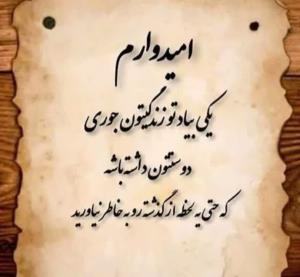 امیدوارم
یکی بیاد تو زندگیتون جوری
دوستتون داشته باشه
که حتی یه لحظه از گذشته رو به خاطر نیاورید